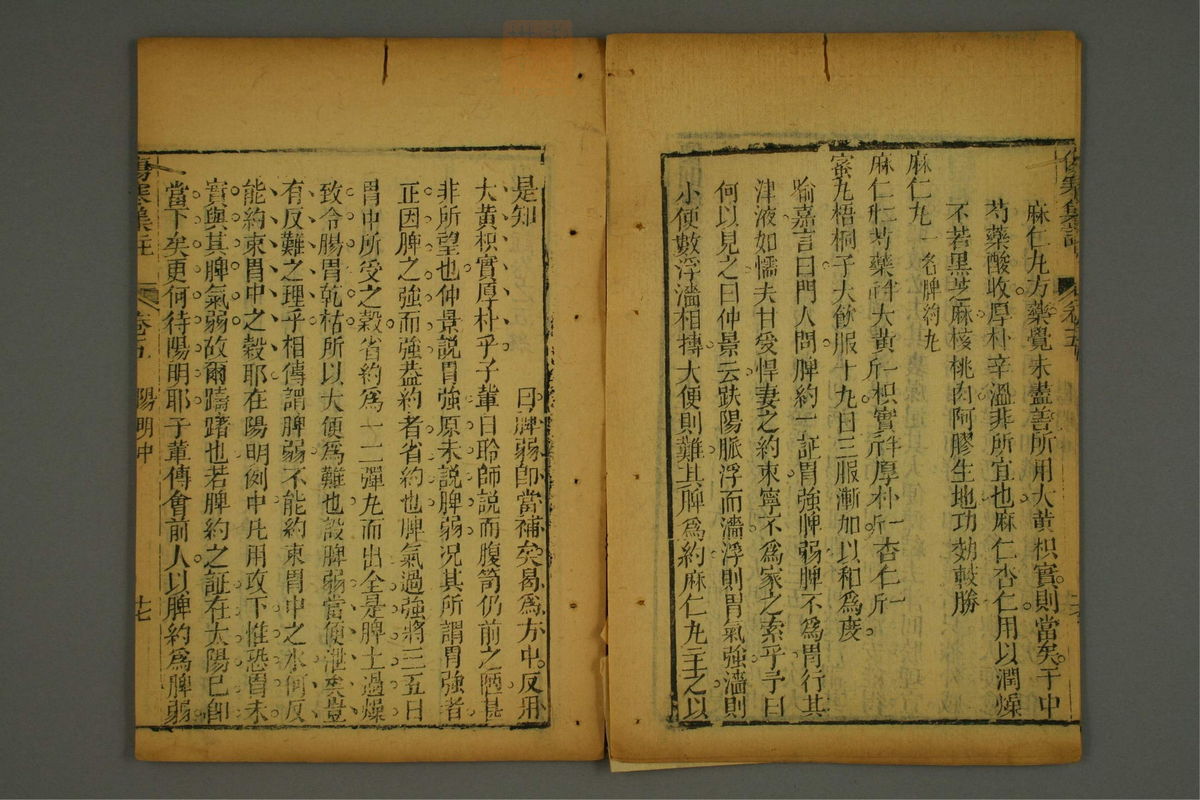 傷寒集註
卷五
麻仁丸方藥覺未盡善所用大黃枳實則當矣于中
芍藥酸收厚朴辛溫非所宜也麻仁杏仁用以潤燥
不若黑芝麻核桃肉阿膠生地功效較勝
麻仁丸 一名脾約丸
麻仁 芍藥 大黃 枳實 厚朴 杏仁
蜜丸梧桐子大飲服十九日三服漸加以和為度
喻嘉言曰門人問脾約一証胃強脾弱脾不為胃行其
津液如懦夫甘受悍妻之約束寧不為家之索乎予曰
何以見之曰仲景云趺陽脈浮而濇浮則胃氣強濇則
小便數浮濇相摶大便則難其脾為約麻仁丸主之以
是知 曰脾弱即當補矣曷為方中反用
大黃枳實厚朴乎子輩日聆師說而腹笥仍前之陋甚
非所望也仲景說胃強原未說脾弱況其所謂胃強者
正因脾之強而強葢約者省約也脾氣過強將三五日
胃中所受之穀省約為一二彈丸而出全是脾土過燥
致令腸胃乾枯所以大便為難也設脾弱當便泄矣豈
有反難之理乎相傳謂脾弱不能約束胃中之水何反
能約束胃中之穀耶在陽明例中凡用攻下惟恐胃未
實與其脾氣弱故爾躊躇也若脾約之証在太陽已即
當下矣更何待陽明耶子輩傳會前人以脾約為脾弱
傷寒集註
卷五 陽明中